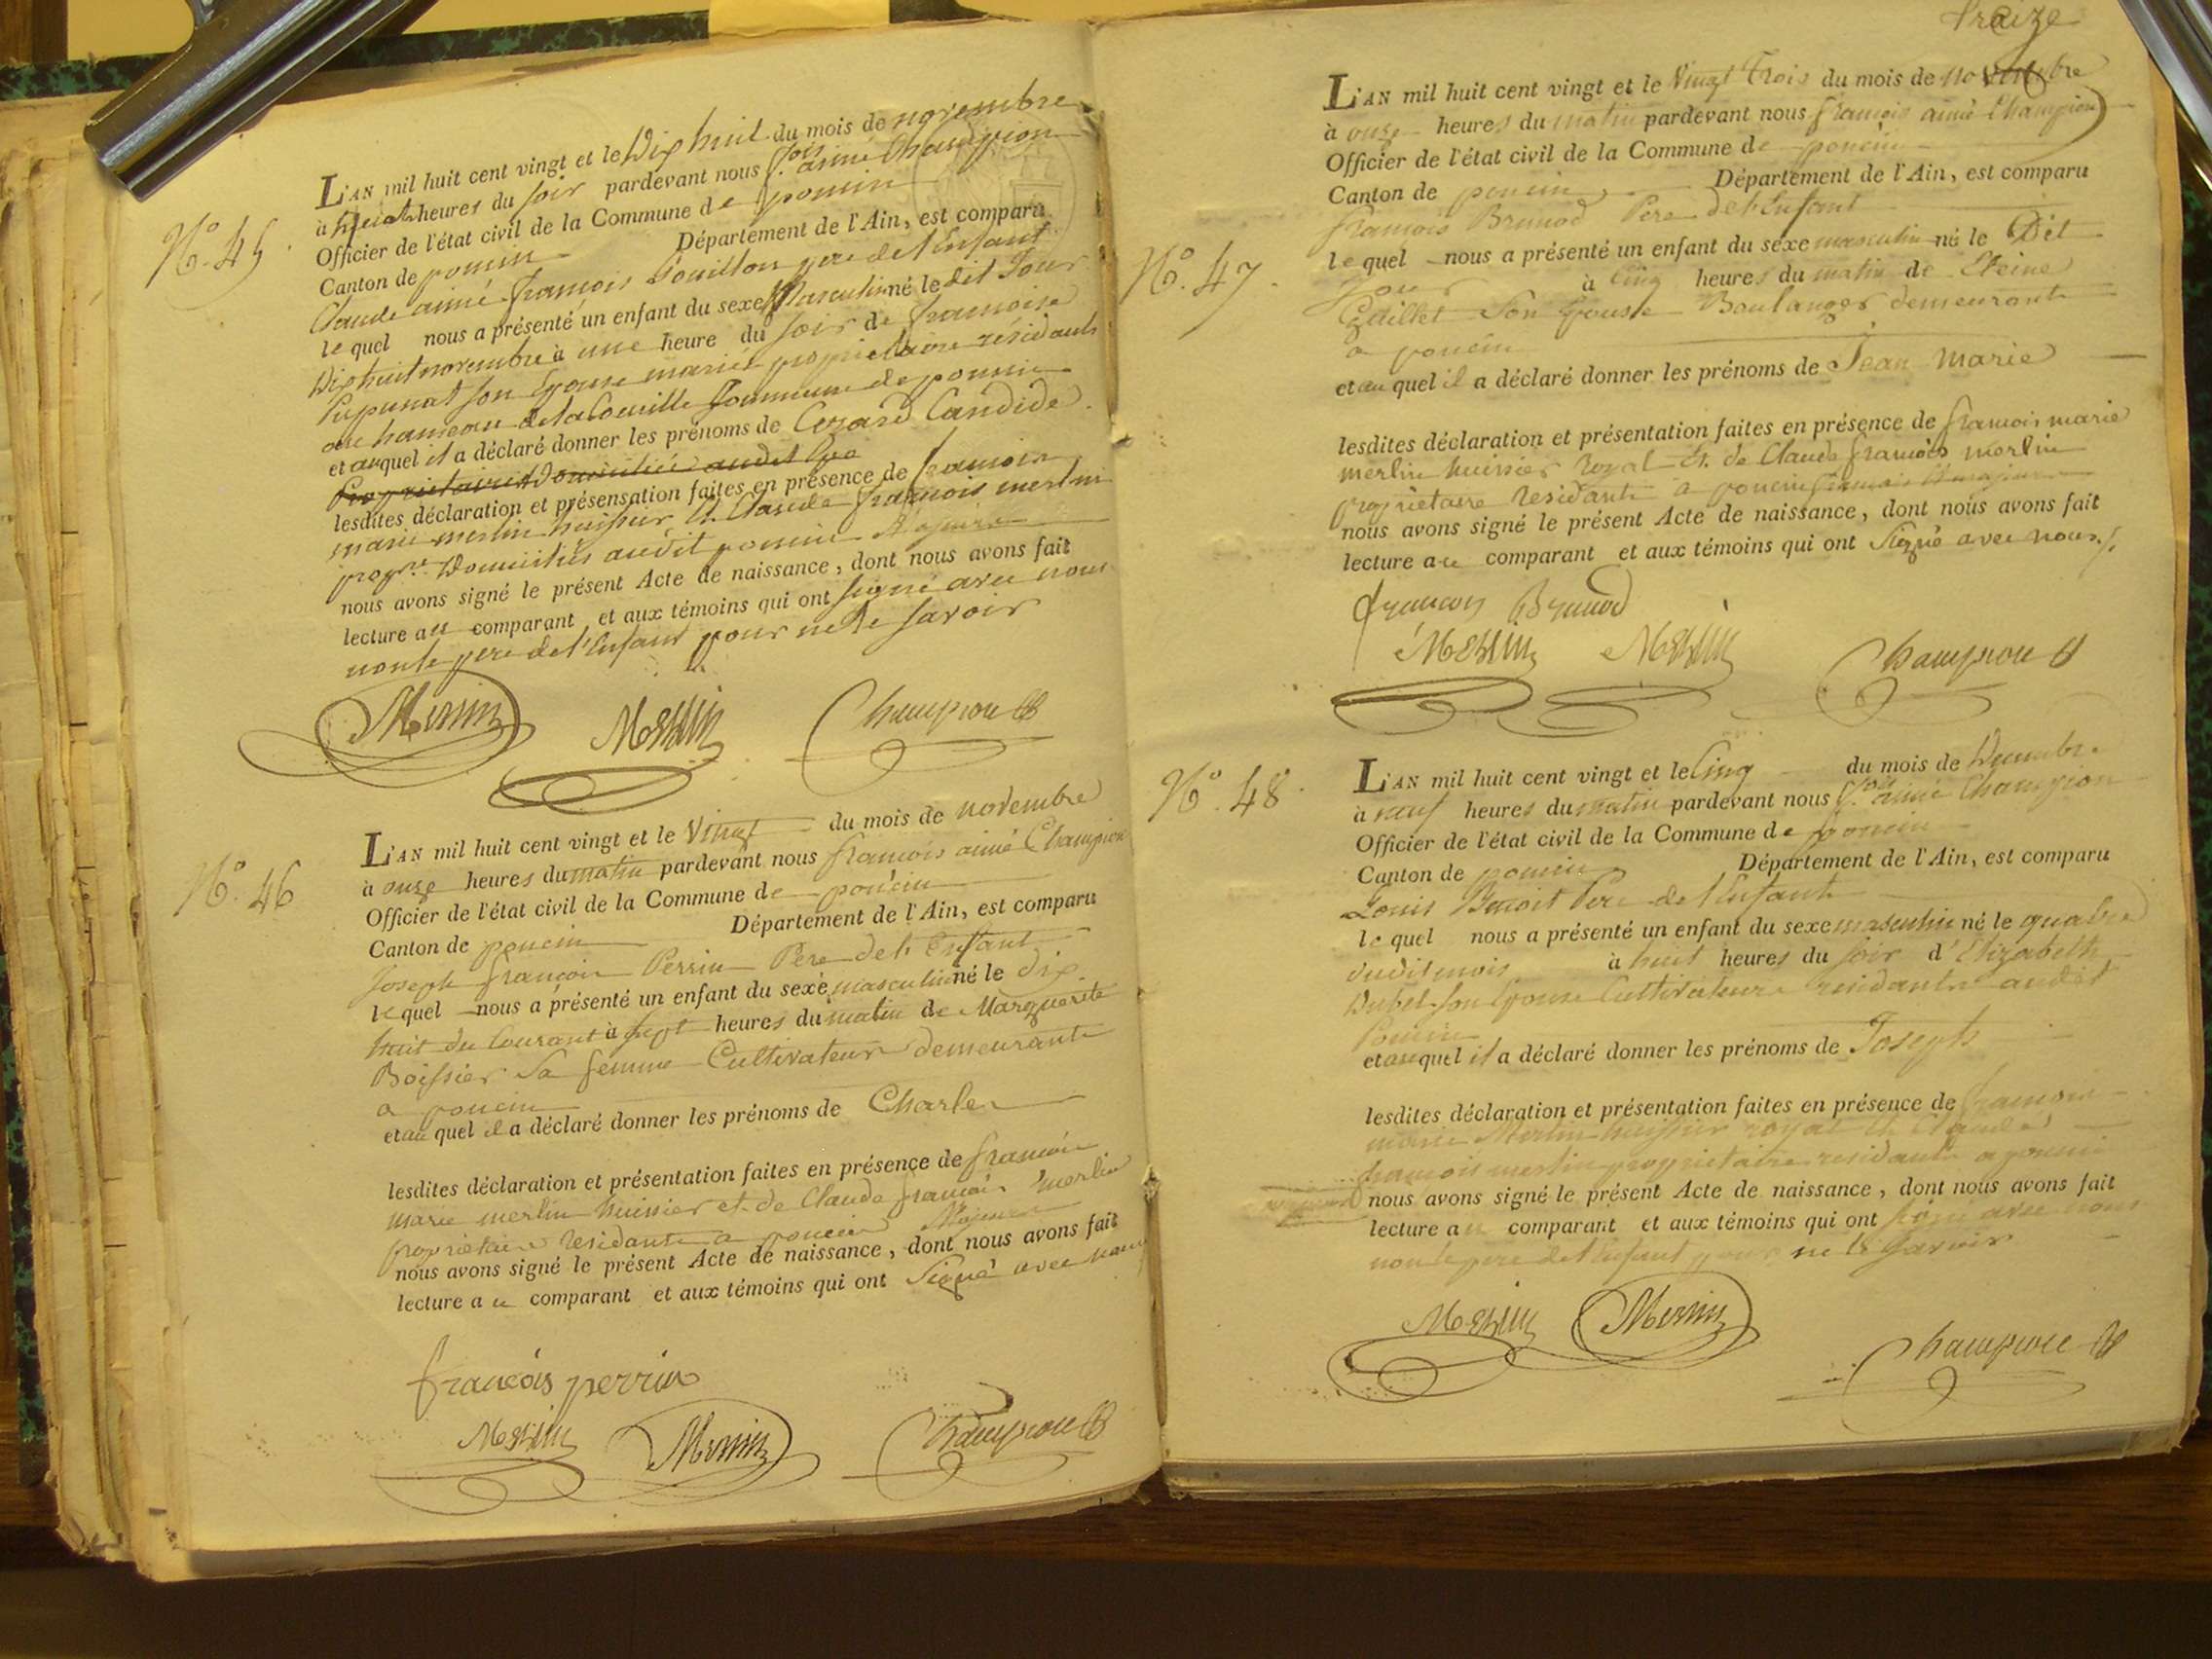 N.º 45
L'AN mil huit cent vingt et le Dix huit du mois de novembre
à heures du soir pardevant nous f.ois aimé Champion
Officier de l'état civil de la Commune de poncin
Canton de poncin Département de l'Ain, est comparu
Claude aimé françois Bouillon pere de l'Enfant
lequel nous a présenté un enfant du sexe Masculin né le dit Jour
Dix huit novembre à une heure du soir de françoise
son Epouse mariés proprietaire résidants
au hameau de la Commune de poncin
et auquel il a déclaré donner les prénoms de Cezard Candide
Proprietaires Domiciliés audit lieu
lesdites déclaration et présensation faites en présence de francois
marie merlin huissier et Claude françois merlin
prop.re Domiciliés audit poncin Majeurs
nous avons signé le présent Acte de naissance, dont nous avons fait
lecture au comparant et aux témoins qui ont signé avec nous
non le pere de l'Enfant pour ne le savoir
Merlin Merlin Champion
N.º 46
L'AN mil huit cent vingt et le Vingt du mois de novembre
à onze heures du matin pardevant nous françois aimé Champion
Officier de l'état civil de la Commune de poncin
Canton de poncin Département de l'Ain, est comparu
Joseph françois Perrin Pere de l'Enfant
lequel nous a présenté un enfant du sexe masculin né le dix
huit du Courant à sept heures du matin de Marguerite
Boissier Sa femme Cultivateur demeurants
a poncin
et au quel il a déclaré donner les prénoms de Charles
lesdites déclaration et présentation faites en présence de françois
marie merlin huissier et de Claude françois merlin
propriétaire residants a poncin Majeurs
nous avons signé le présent Acte de naissance, dont nous avons fait
lecture au comparant et aux témoins qui ont Signé avec nous
françois perrin
Merlin Merlin Champion
traize
N.º 47
L'AN mil huit cent vingt et le Vingt Trois du mois de novembre
à onze heures du matin pardevant nous françois aimé Champion
Officier de l'état civil de la Commune de poncin
Canton de poncin Département de l'Ain, est comparu
françois Brunod Pere de l'Enfant
lequel nous a présenté un enfant du sexe masculin né le Dit
Jour à Cinq heures du matin de
Son Epouse Boulanger demeurants
a poncin
et au quel il a déclaré donner les prénoms de Jean Marie
lesdites déclaration et présentation faites en présence de francois marie
merlin huissier royal et de Claude françois merlin
propriétaire residants a poncin
nous avons signé le présent Acte de naissance, dont nous avons fait
lecture au comparant et aux témoins qui ont Signé avec nous
françois Brunod
Merlin Merlin Champion
N.º 48
L'AN mil huit cent vingt et le Cinq du mois de Decembre
à neuf heures du matin pardevant nous f.ois aimé Champion
Officier de l'état civil de la Commune de poncin
Canton de poncin Département de l'Ain, est comparu
Louis Benoit Pere de l'Enfant
lequel nous a présenté un enfant du sexe masculin né le quatre
dudit mois à huit heures du soir d'Elizabeth
Dubet son Epouse Cultivateurs residants audit
Poncin
et auquel il a déclaré donner les prénoms de Joseph
lesdites déclaration et présentation faites en présence de françois
marie Merlin huissier royal et Claude
françois merlin proprietaire residants a poncin
nous avons signé le présent Acte de naissance, dont nous avons fait
lecture au comparant et aux témoins qui ont signé avec nous
non le pere de l'Enfant pour ne le savoir
Merlin Merlin Champion